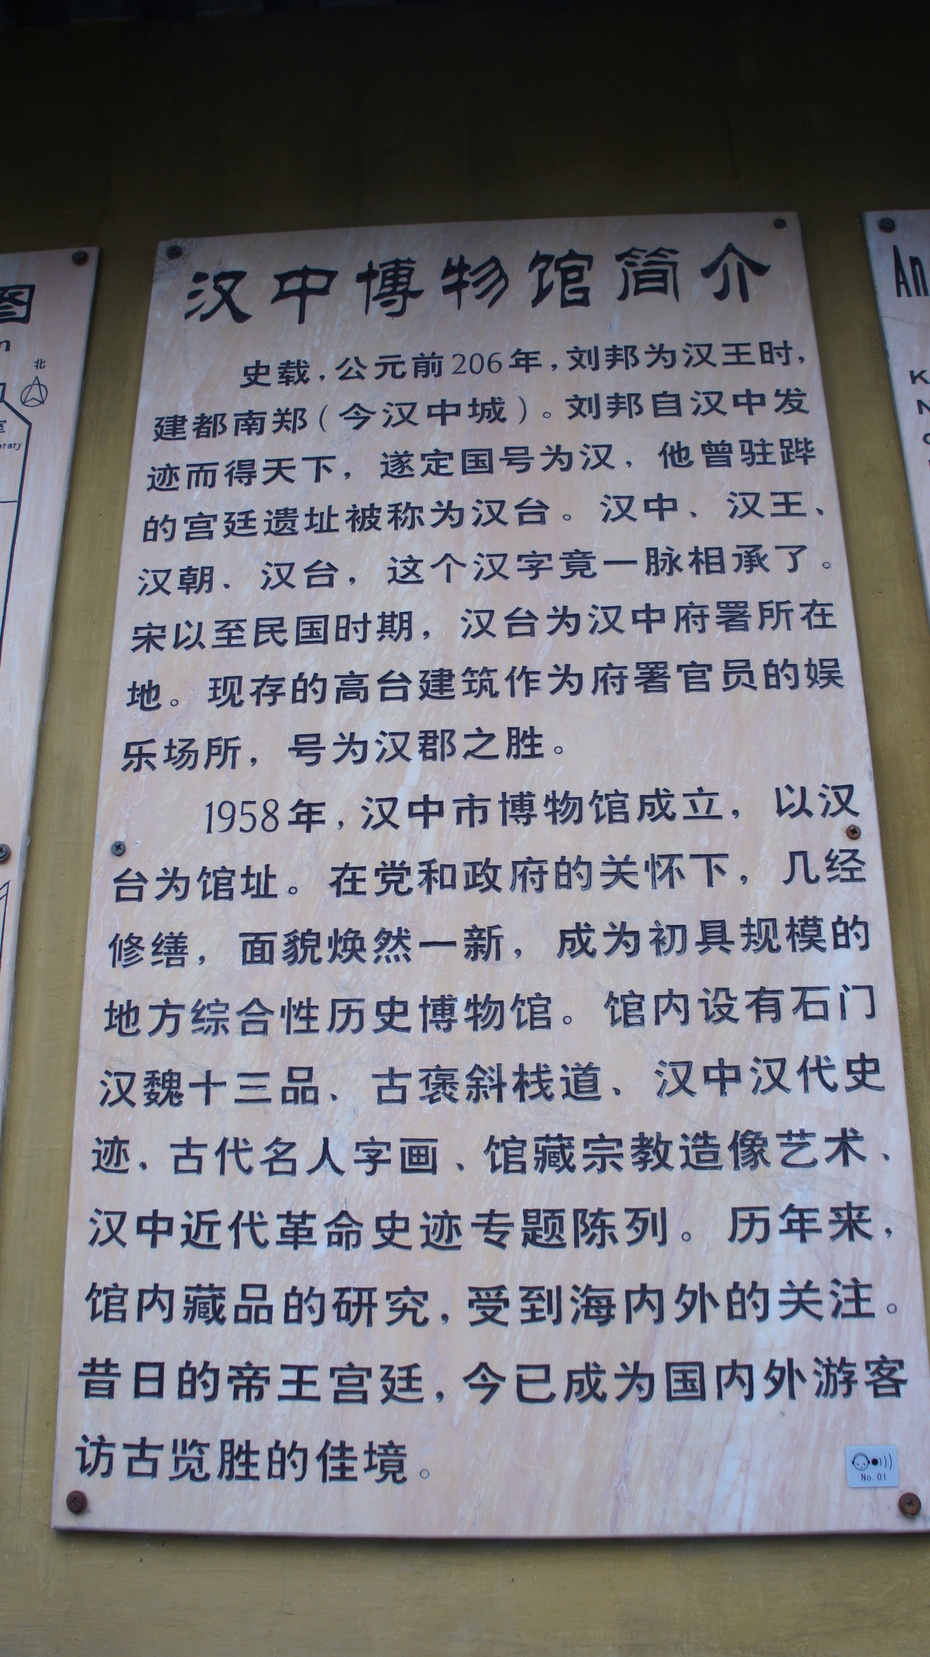 汉中博物馆简介
史载，公元前206年，刘邦为汉王时，
建都南郑（今汉中城）。刘邦自汉中发
迹而得天下，遂定国号为汉，他曾驻跸
的宫廷遗址被称为汉台。汉中、汉王、
汉朝、汉台，这个汉字竟一脉相承了。
宋以至民国时期，汉台为汉中府署所在
地。现存的高台建筑作为府署官员的娱
乐场所，号为汉郡之胜。
1958年，汉中市博物馆成立，以汉
台为馆址。在党和政府的关怀下，几经
修缮，面貌焕然一新，成为初具规模的
地方综合性历史博物馆。馆内设有石门
汉魏十三品、古褒斜栈道、汉中汉代史
迹、古代名人字画、馆藏宗教造像艺术、
汉中近代革命史迹专题陈列。历年来，
馆内藏品的研究，受到海内外的关注。
昔日的帝王宫廷，今已成为国内外游客
访古览胜的佳境。
No.01
图
北
An